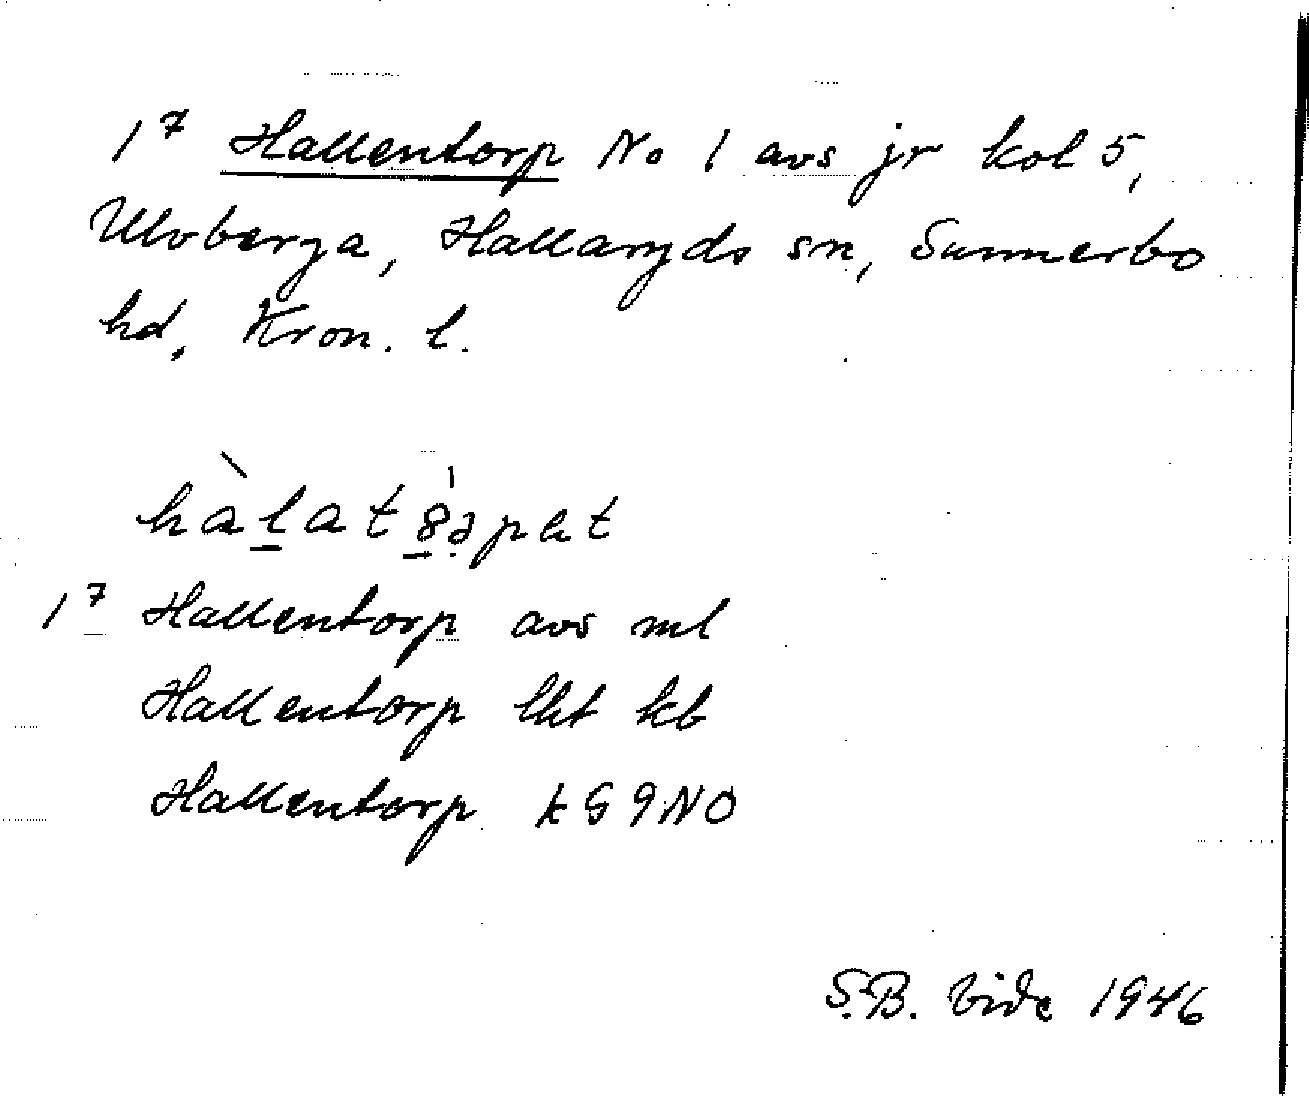 1⁷ Hallentorp No 1 avs jr kol 5,
Ulvberga, Hallaryds sn, Sunnerbo
hd, Kron. l.
1⁷ Hallentorp avs ml
Hallentorp lht kb
Hallentorp k G 9 NO
S.B. Vide 1946